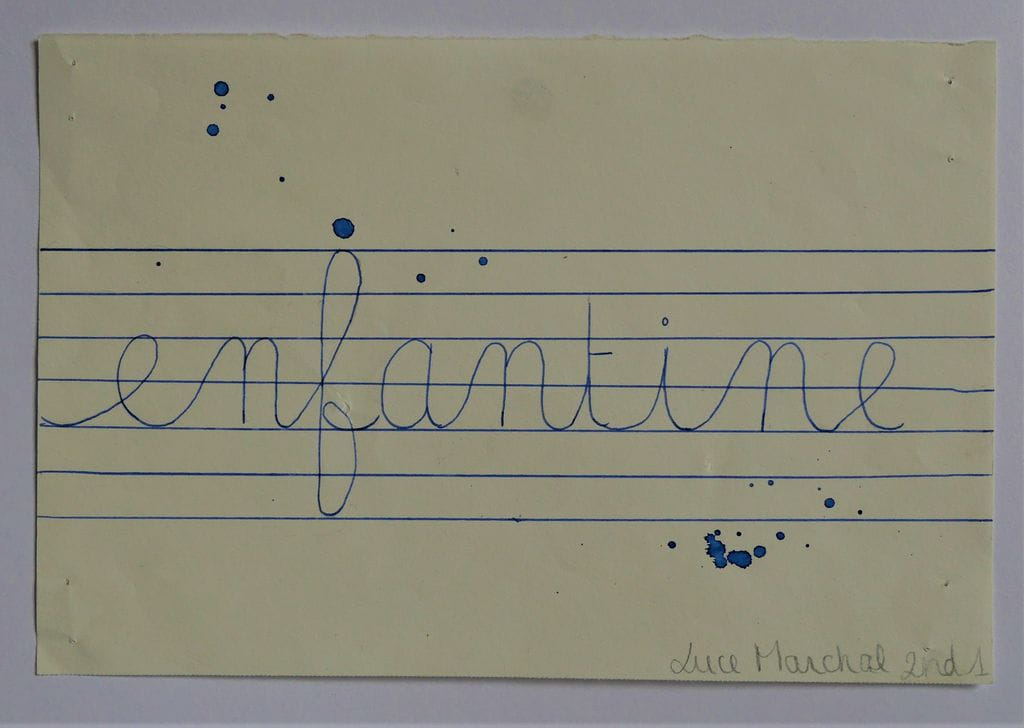 enfantine
Luce Marchal 2nd 1